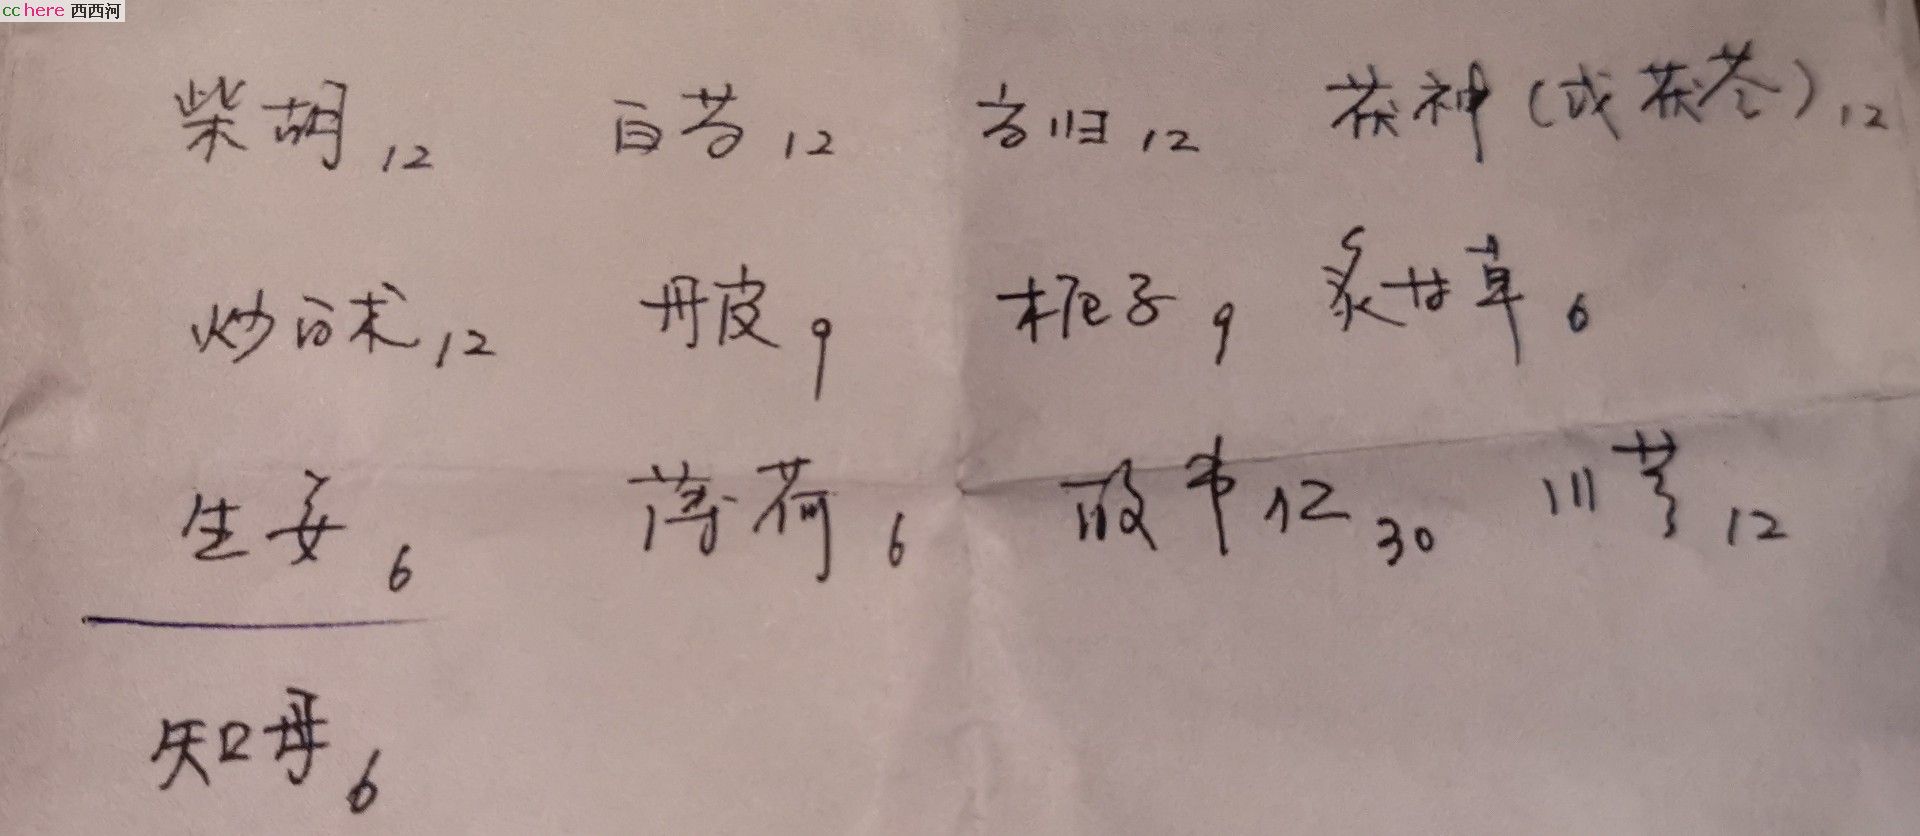 cchere 西西河
柴胡12 白芍12 当归12 茯神(或茯苓)12
炒白术12 丹皮9 栀子9 炙甘草6
生姜6 薄荷6 酸枣仁30 川芎12
知母6